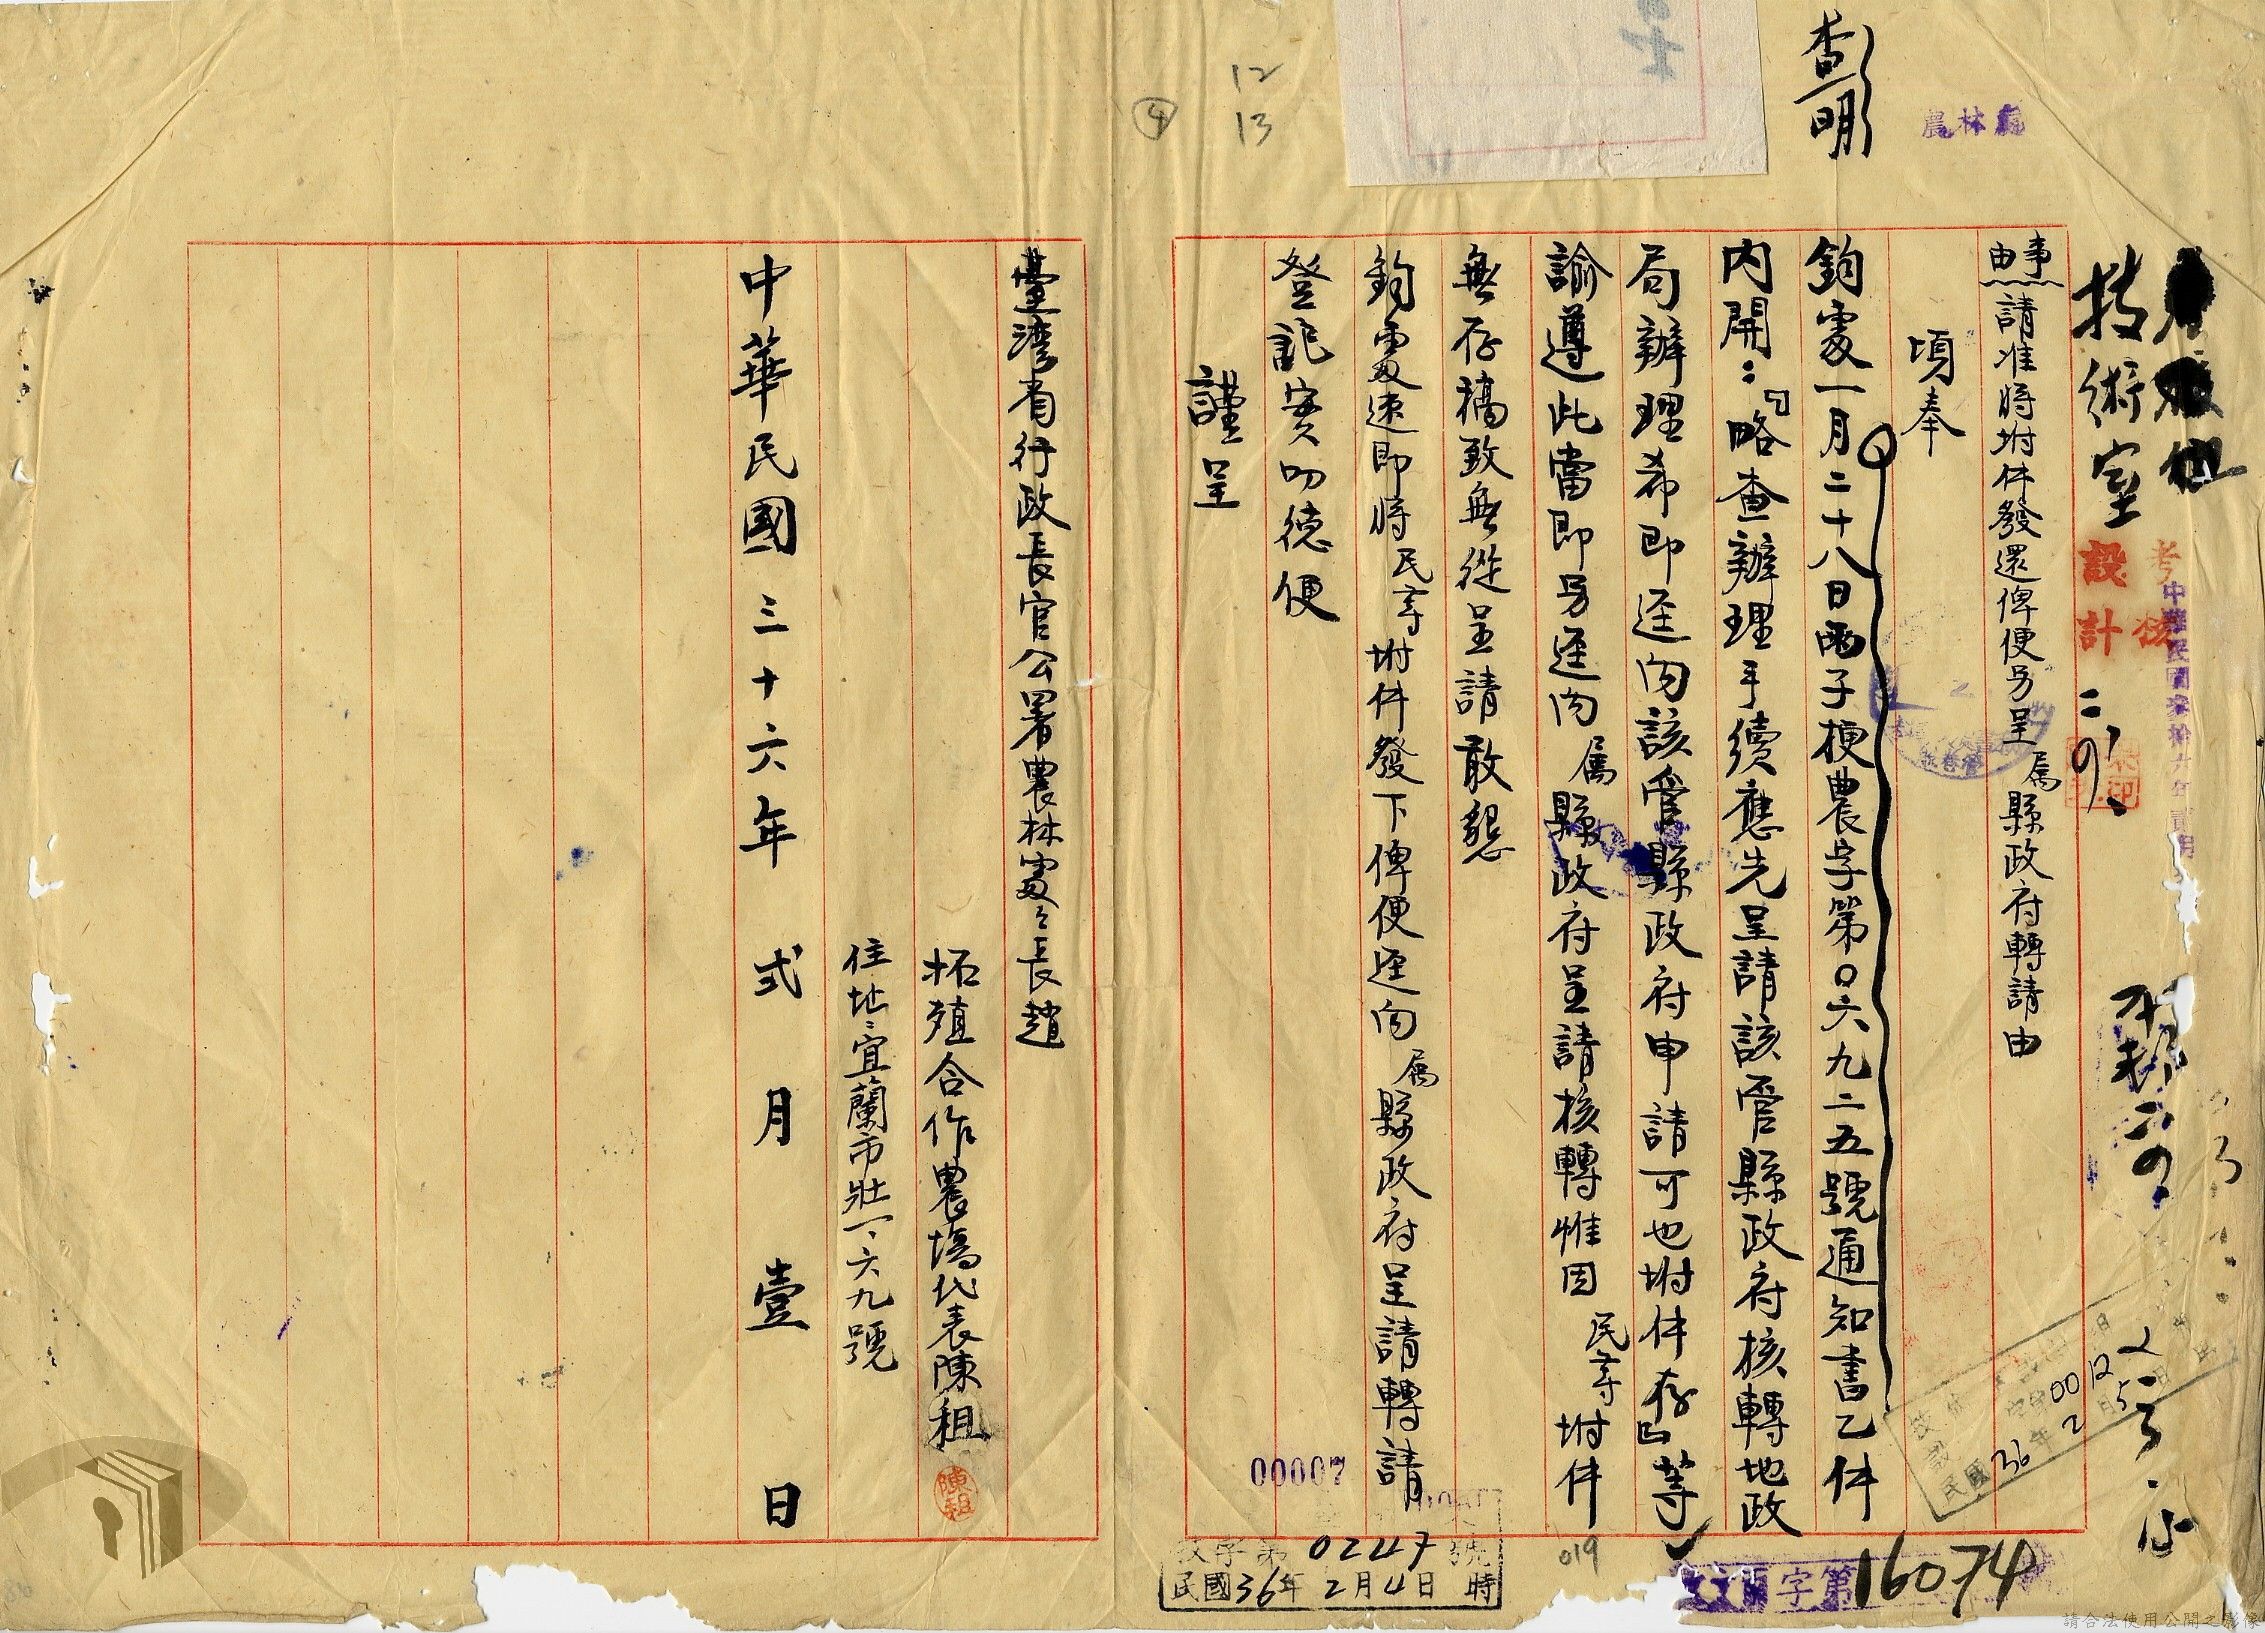 查明
農林處
技術室
設計
考核
事由
請准將坿件發還俾便另呈屬縣政府轉請由
頃奉
鈞處一月二十八日丙子梗農字第0六九二五號通知書乙件
內開：『略查辦理手續應先呈請該管縣政府核轉地政
局辦理希即逕向該管縣政府申請可也坿件存』等
諭遵此當即另逕向屬縣政府呈請核轉惟因民等坿件
無存稿致無從呈請敢懇
鈞處速即將民等坿件發下俾便逕向屬縣政府呈請轉請
登記實叨德便
謹呈
臺灣省行政長官公署農林處々長趙
拓殖合作農場代表陳租
陳租
住址：宜蘭市壯一、六九號
中華民國三十六年弍月壹日
12
13
4
00007
字第0247號
民國36年2月4日 時
019
字第16074
請合法使用公開之影像